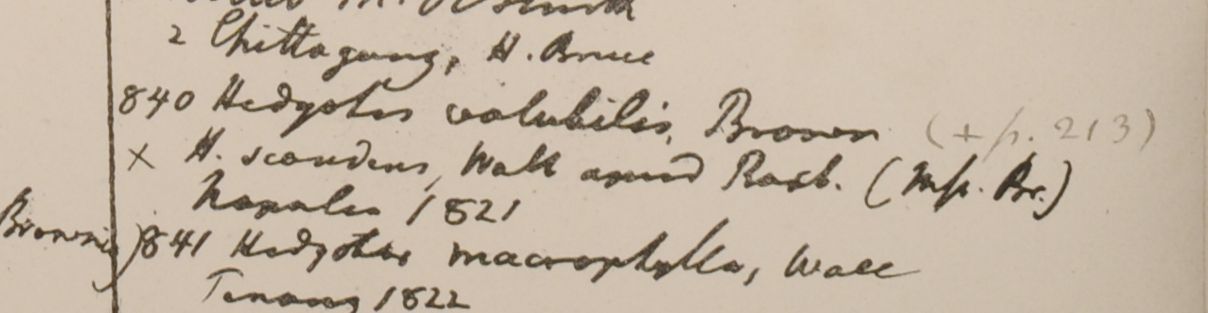 2 Chittagong, H. Bruce
840 Hedyotis volubilis, Brown (+ p. 213)
x H. scandens, Wall apud Roxb. (Mss. Br.)
Napalia 1821
Brownii) 841 Hedyotis macrophylla, Wall
Penang 1822